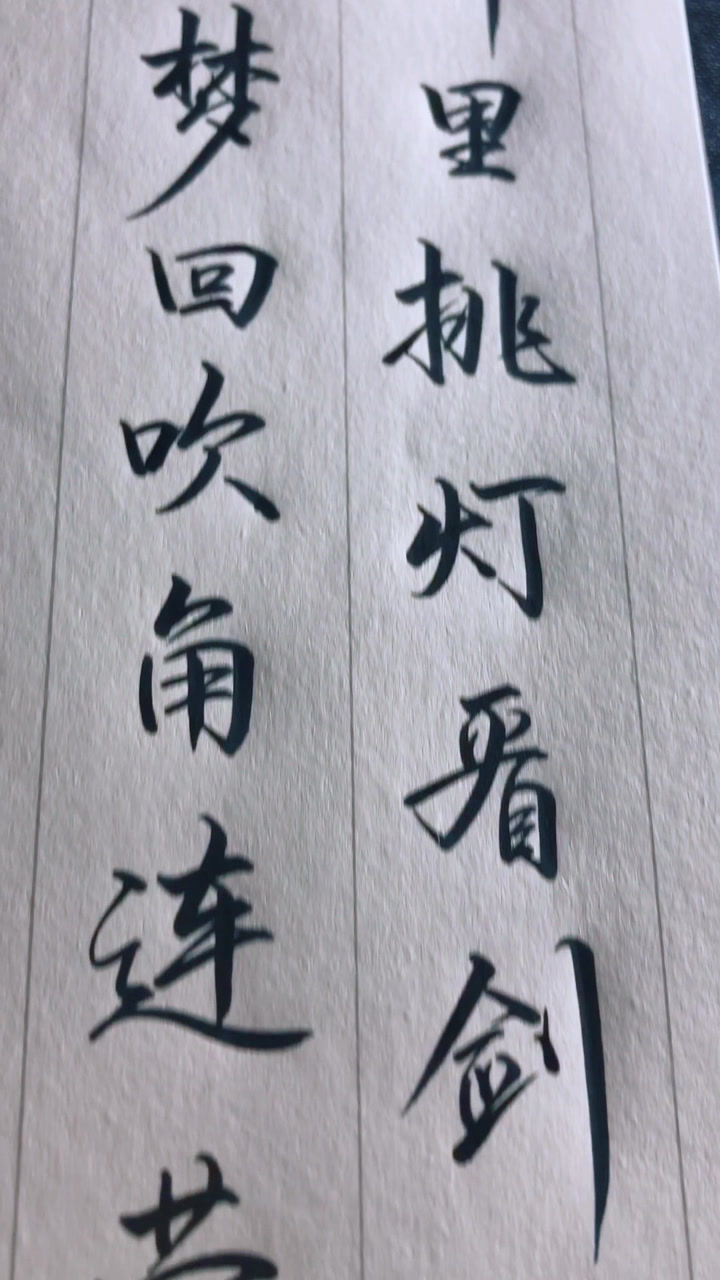 里挑灯看剑
梦回吹角连